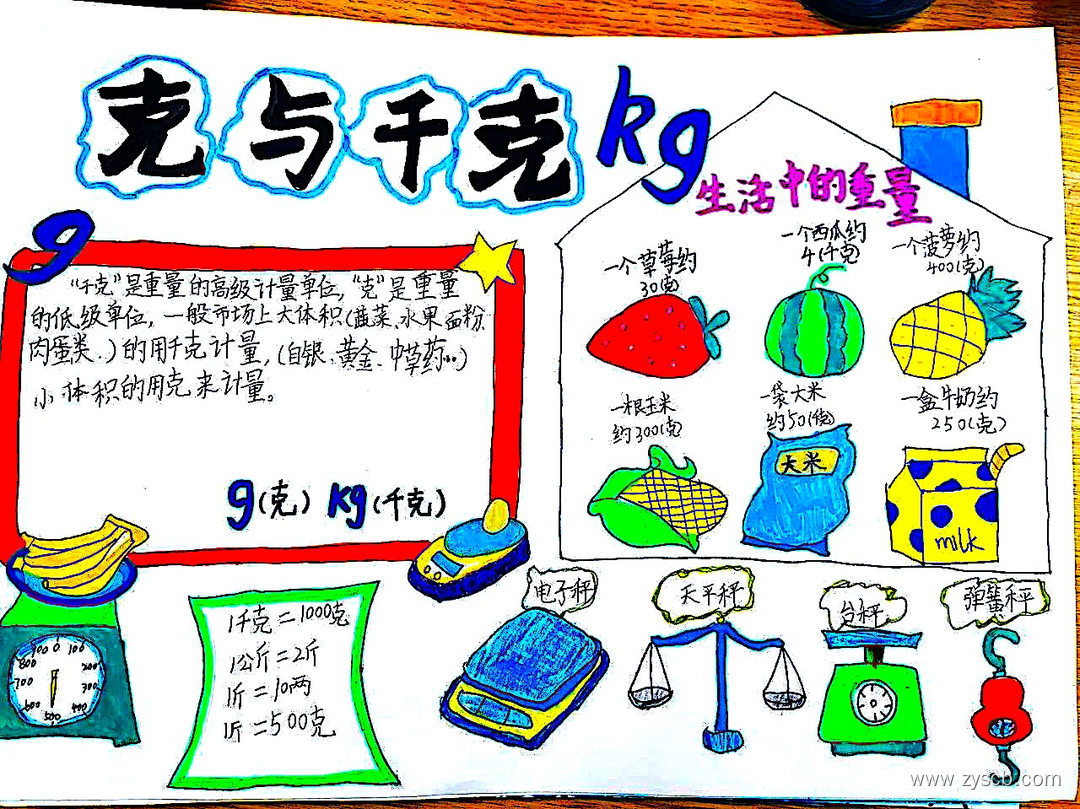 克与千克 kg
生活中的重量
g
"千克"是重量的高级计量单位,"克"是重量
的低级单位,一般市场上大体积(蔬菜、水果、面粉
肉蛋类.)的用千克计量,(白银、黄金、中草药..)
小体积的用克来计量。
g(克) kg(千克)
一个草莓约
30(克)
一个西瓜约
4(千克)
一个菠萝约
400(克)
一根玉米
约300(克)
一袋大米
约50(千克)
一盒牛奶约
250(克)
大米
milk
1千克=1000克
1公斤=2斤
1斤=10两
1斤=500克
电子秤
天平秤
台秤
弹簧秤
0
100
300
500
600
700
800
www.zyscb.com